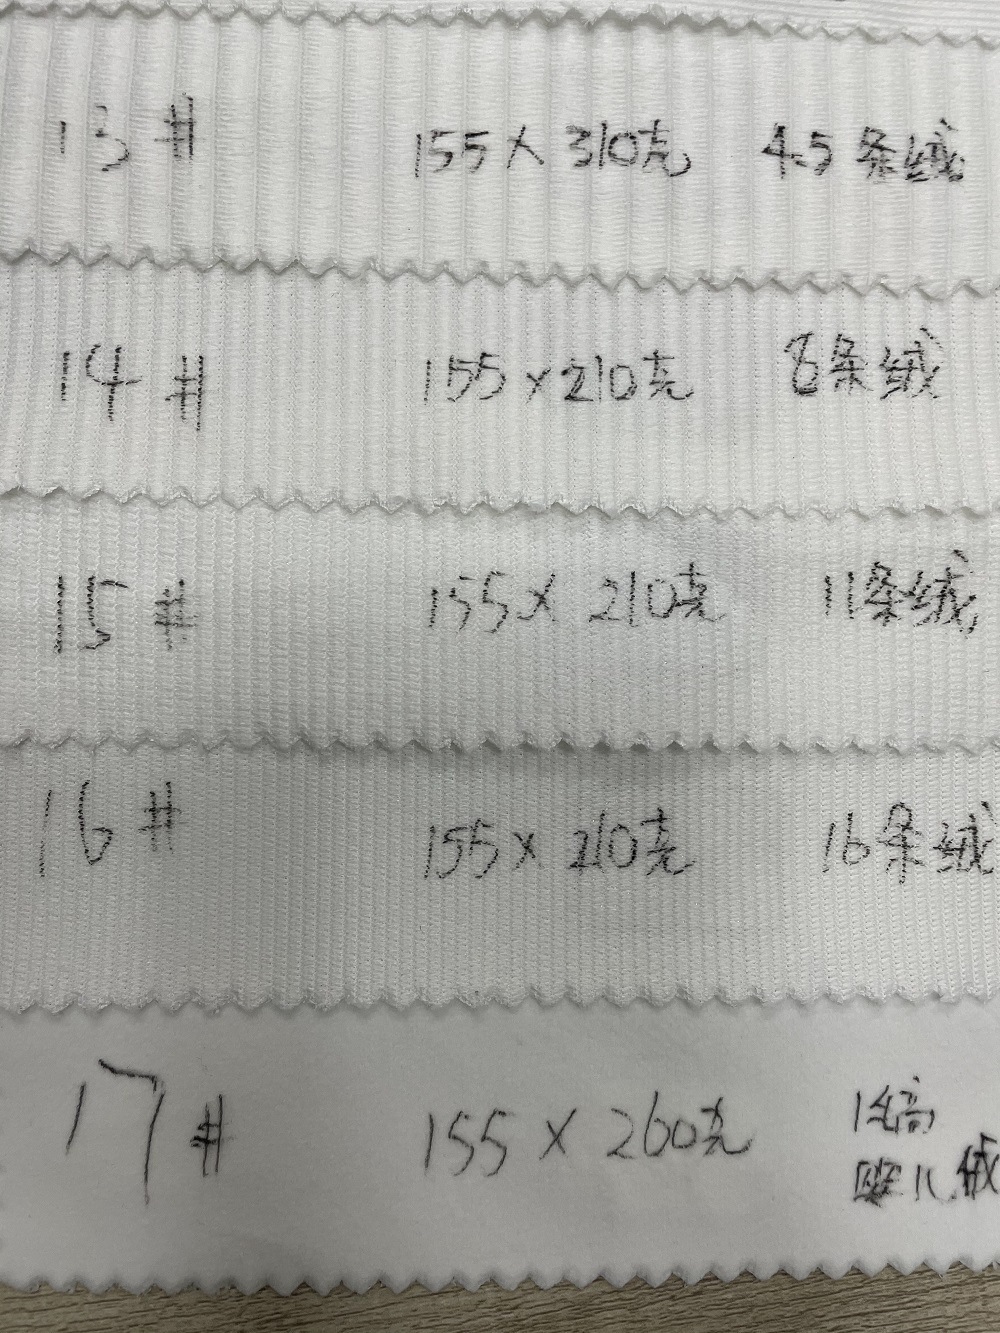 13# 155×310克 4.5条绒
14# 155×210克 8条绒
15# 155×210克 11条绒
16# 155×210克 16条绒
17# 155×260克 高
儿绒